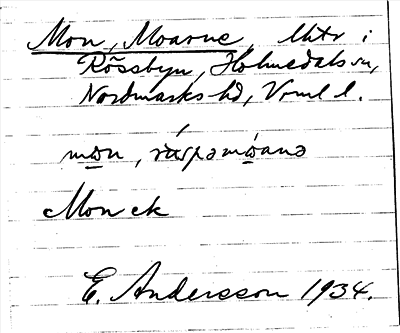 Mon, Moarne, lhtr i
Rössbyn, Holmedals sn,
Nordmarks hd, Vrml l.
mωn, ráspəmωanə
Mon ck
E. Andersson 1934.